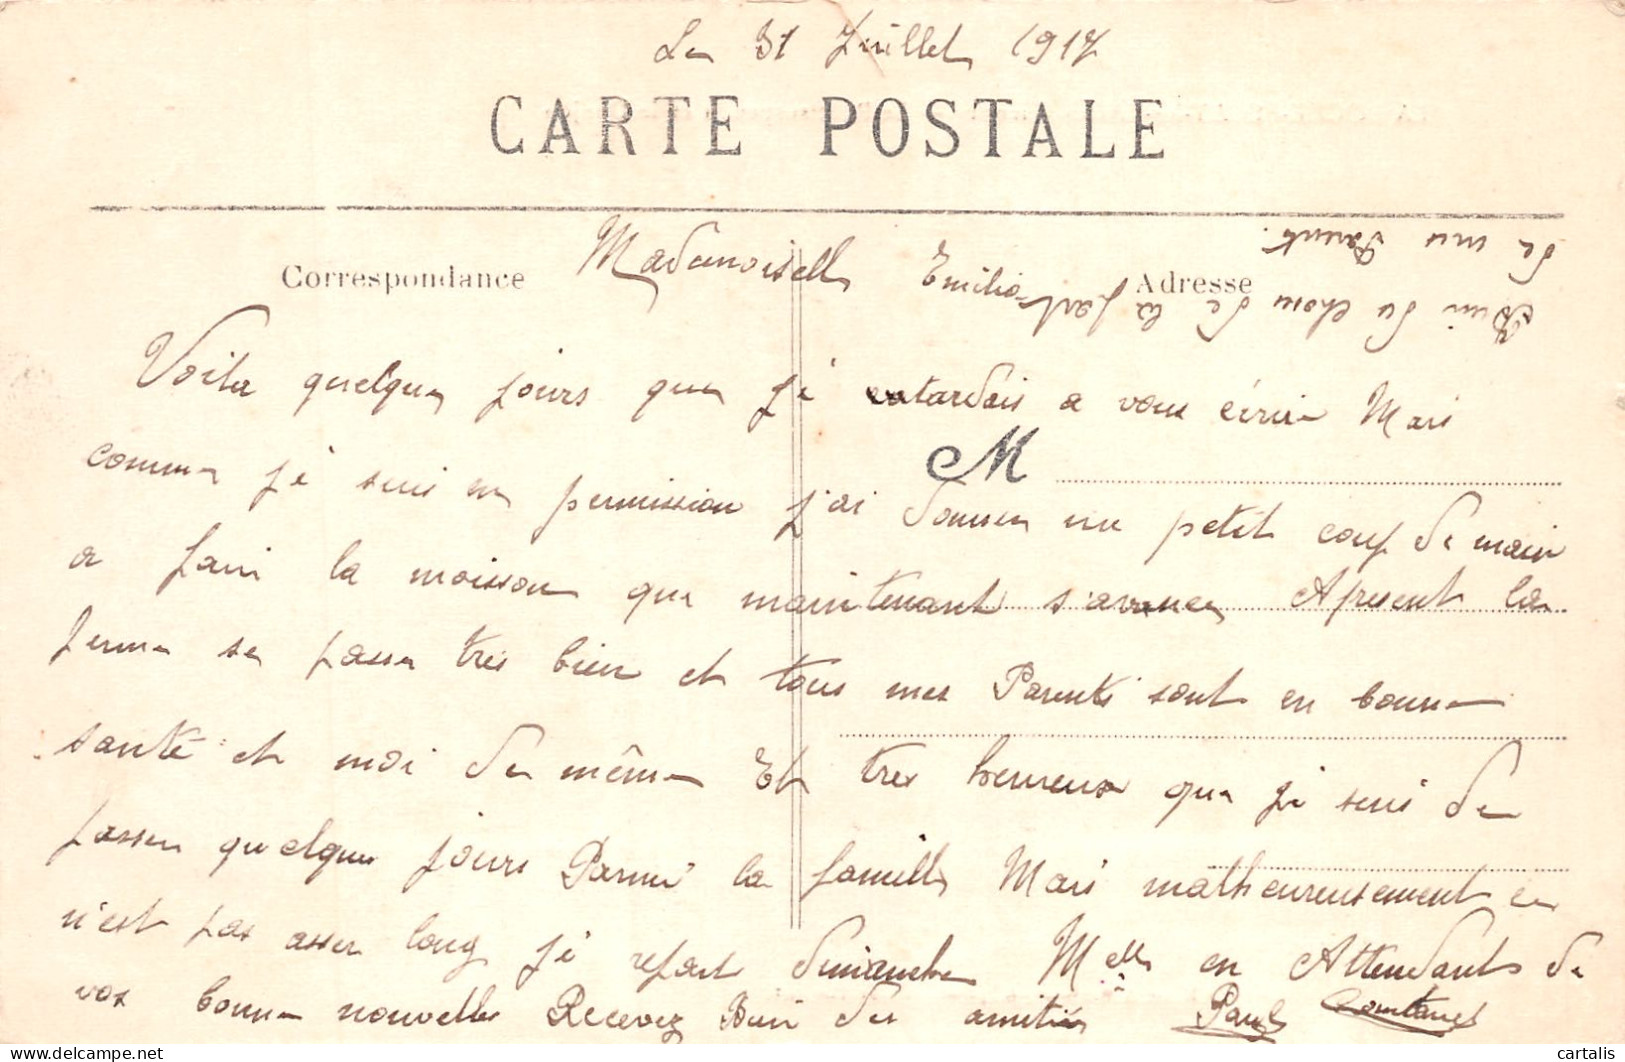 Le 31 Juillet 1917
CARTE POSTALE
Correspondance
Adresse
Mademoiselle Emilia
Voila quelque jours que je tardais a vous écrire Mais
M
comme je suis en permission j'ai donner un petit coup de main
a faire la moisson que maintenant s'avance Apresent la
ferme se passe tres bien et tous mes Parents sont en bonne
santé et moi de même Et tres heureux que je suis de
passer quelque jours Parmi la famille Mais malheureusement ce
n'est pas asser long je repart dimanche Melle en Attendant de
vos bonne nouvelle Recevez Bien des amitiés Paul Constance
Bien du chose de la part
de mes Parents.
cartalis